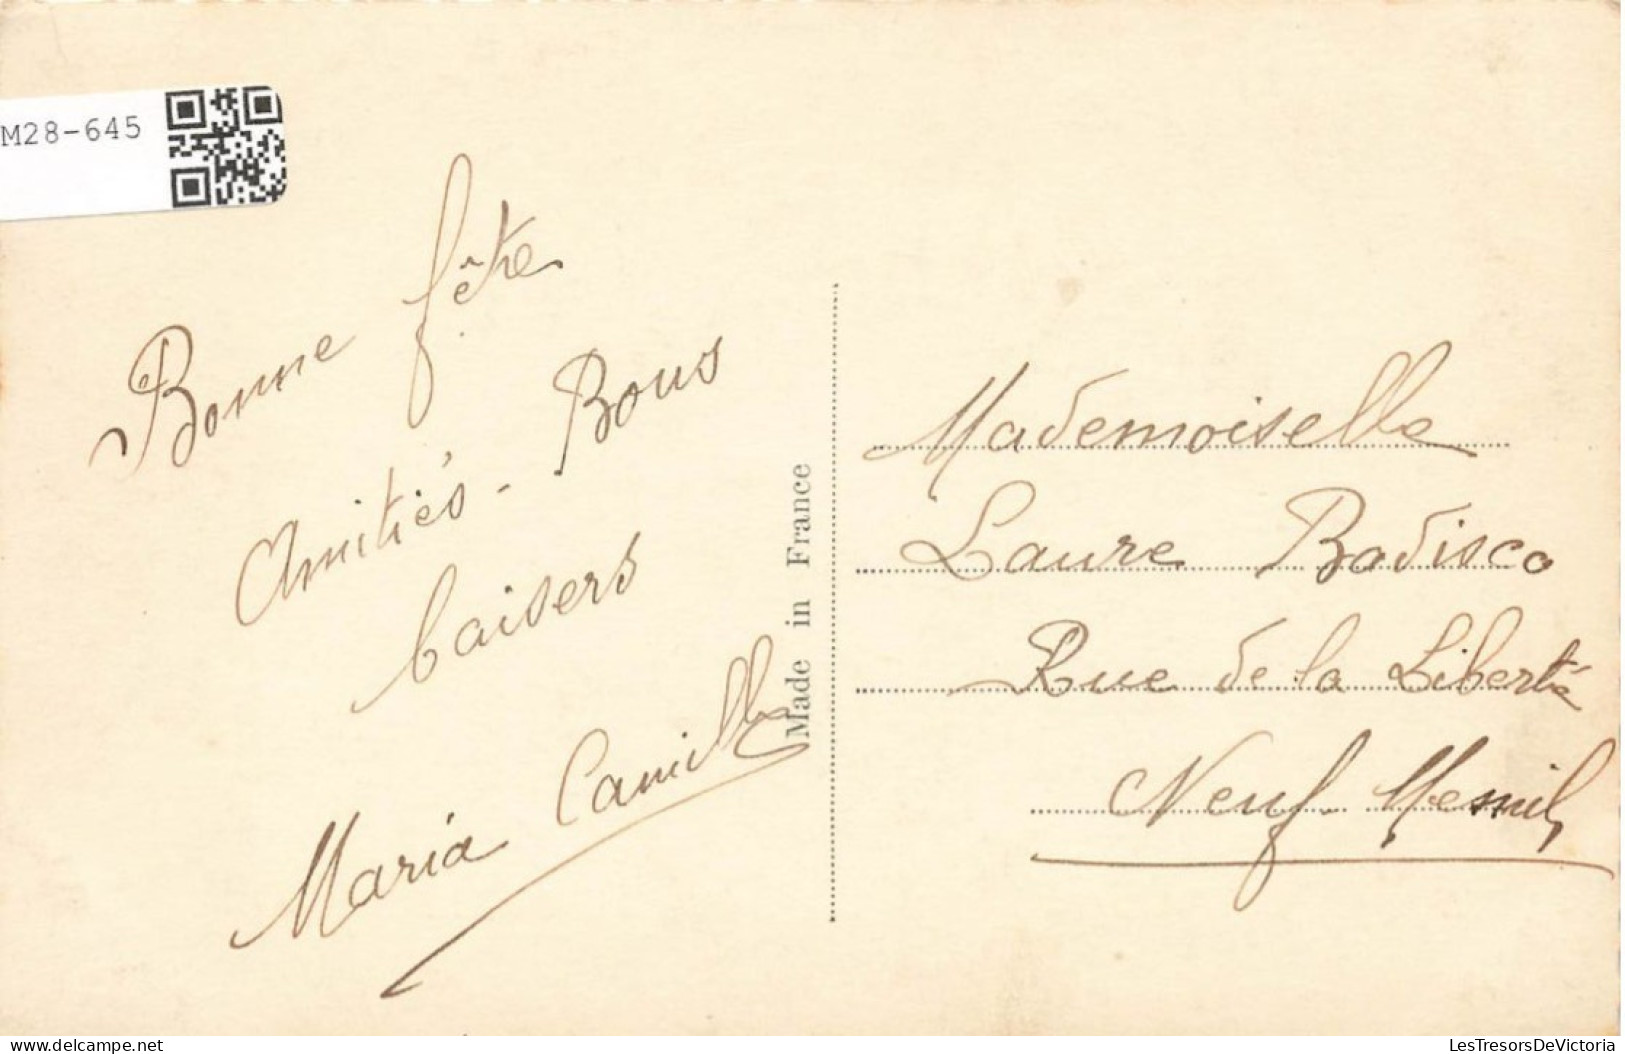 M28-645
Bonne fête
Amitiés - Bons
baisers
Maria Camille
Made in France
Mademoiselle
Laure Badisco
Rue de la Liberté
Neuf-Mesnil
delcampe.net
LesTresorsDeVictoria